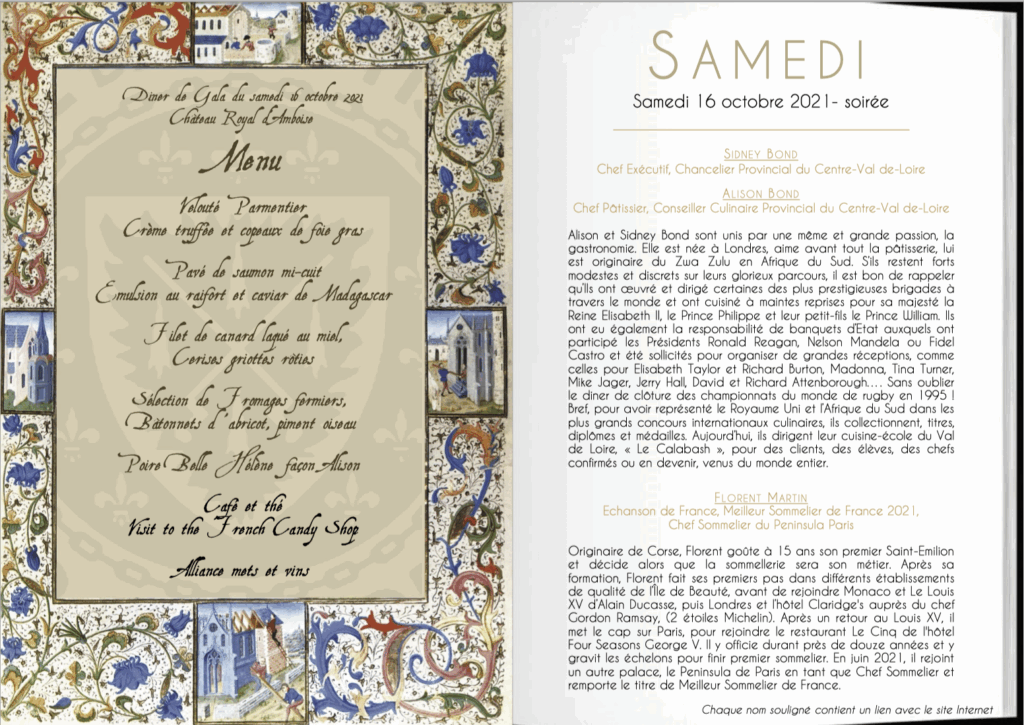 Diner de Gala du samedi 16 octobre 2021
Château Royal d'Amboise
Menu
Velouté Parmentier
Crème truffée et copeaux de foie gras
Pavé de saumon mi-cuit
Emulsion au raifort et caviar de Madagascar
Filet de canard laqué au miel,
Cerises griottes rôties
Sélection de Fromages fermiers,
Bâtonnets d'abricot, piment oiseau
Poire Belle Hélène façon Alison
Café et thé
Visit to the French Candy Shop
Alliance mets et vins
SAMEDI
Samedi 16 octobre 2021- soirée
SIDNEY BOND
Chef Exécutif, Chancelier Provincial du Centre-Val de-Loire
ALISON BOND
Chef Pâtissier, Conseiller Culinaire Provincial du Centre-Val de-Loire
Alison et Sidney Bond sont unis par une même et grande passion, la
gastronomie. Elle est née à Londres, aime avant tout la pâtisserie, lui
est originaire du Zwa Zulu en Afrique du Sud. S'ils restent forts
modestes et discrets sur leurs glorieux parcours, il est bon de rappeler
qu'ils ont œuvré et dirigé certaines des plus prestigieuses brigades à
travers le monde et ont cuisiné à maintes reprises pour sa majesté la
Reine Elisabeth II, le Prince Philippe et leur petit-fils le Prince William. Ils
ont eu également la responsabilité de banquets d'Etat auxquels ont
participé les Présidents Ronald Reagan, Nelson Mandela ou Fidel
Castro et été sollicités pour organiser de grandes réceptions, comme
celles pour Elisabeth Taylor et Richard Burton, Madonna, Tina Turner,
Mike Jager, Jerry Hall, David et Richard Attenborough.... Sans oublier
le diner de clôture des championnats du monde de rugby en 1995 !
Bref, pour avoir représenté le Royaume Uni et l'Afrique du Sud dans les
plus grands concours internationaux culinaires, ils collectionnent, titres,
diplômes et médailles. Aujourd'hui, ils dirigent leur cuisine-école du Val
de Loire, « Le Calabash », pour des clients, des élèves, des chefs
confirmés ou en devenir, venus du monde entier.
FLORENT MARTIN
Echanson de France, Meilleur Sommelier de France 2021,
Chef Sommelier du Peninsula Paris
Originaire de Corse, Florent goûte à 15 ans son premier Saint-Emilion
et décide alors que la sommellerie sera son métier. Après sa
formation, Florent fait ses premiers pas dans différents établissements
de qualité de l'Île de Beauté, avant de rejoindre Monaco et Le Louis
XV d'Alain Ducasse, puis Londres et l'hôtel Claridge's auprès du chef
Gordon Ramsay, (2 étoiles Michelin). Après un retour au Louis XV, il
met le cap sur Paris, pour rejoindre le restaurant Le Cinq de l'hôtel
Four Seasons George V. Il y officie durant près de douze années et y
gravit les échelons pour finir premier sommelier. En juin 2021, il rejoint
un autre palace, le Peninsula de Paris en tant que Chef Sommelier et
remporte le titre de Meilleur Sommelier de France.
Chaque nom souligné contient un lien avec le site Internet